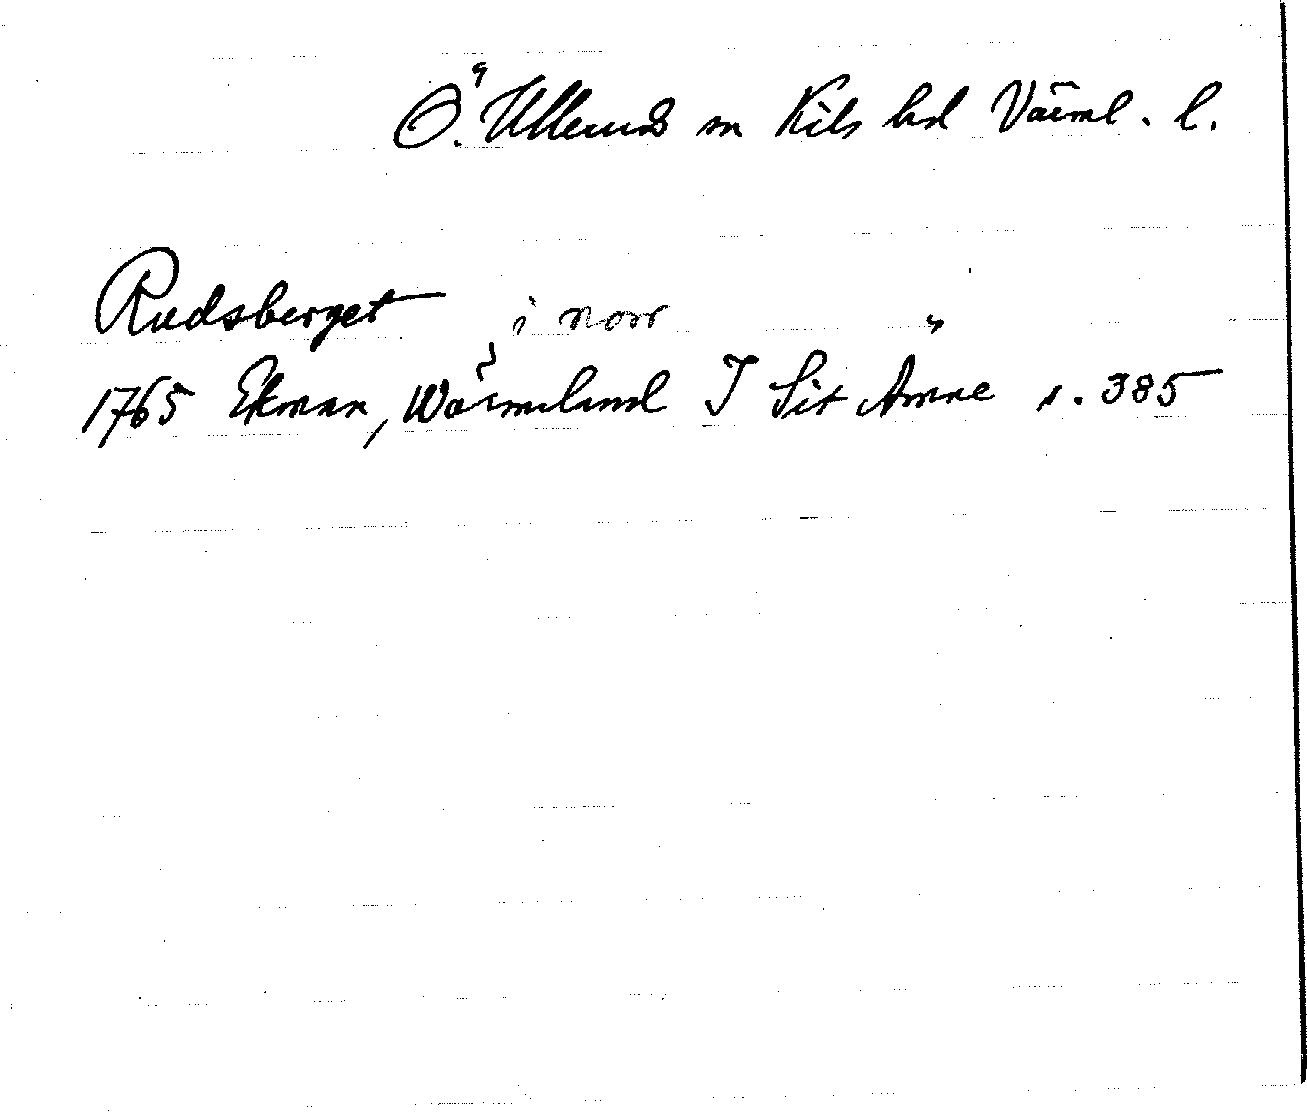 Ö. Ullerud sn Kils hd Värml. l.
Rudsberget i norr "
1765 Ekman, Wärmland I Sit Amne s. 385